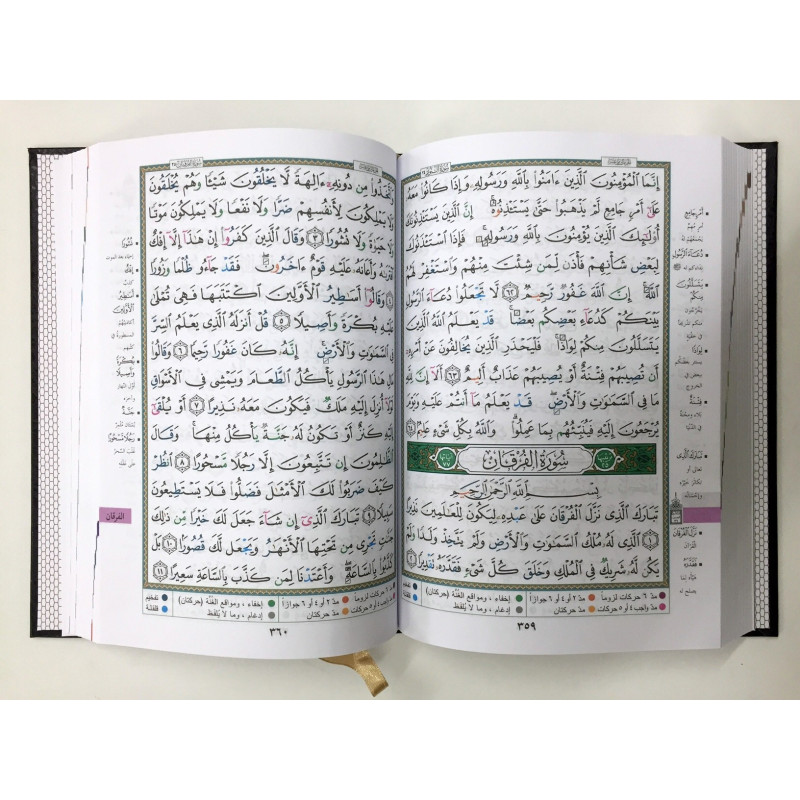 إِنَّمَا الْمُؤْمِنُونَ الَّذِينَ ءَامَنُوا بِاللَّهِ وَرَسُولِهِ وَإِذَا كَانُوا مَعَهُ
عَلَى أَمْرٍ جَامِعٍ لَمْ يَذْهَبُوا حَتَّى يَسْتَأْذِنُوهُ إِنَّ الَّذِينَ يَسْتَأْذِنُونَكَ
أُولَئِكَ الَّذِينَ يُؤْمِنُونَ بِاللَّهِ وَرَسُولِهِ فَإِذَا اسْتَأْذَنُوكَ
لِبَعْضِ شَأْنِهِمْ فَأْذَنْ لِمَنْ شِئْتَ مِنْهُمْ وَاسْتَغْفِرْ لَهُمُ
اللَّهَ إِنَّ اللَّهَ غَفُورٌ رَحِيمٌ ٦٢ لَا تَجْعَلُوا دُعَاءَ الرَّسُولِ
بَيْنَكُمْ كَدُعَاءِ بَعْضِكُمْ بَعْضًا قَدْ يَعْلَمُ اللَّهُ الَّذِينَ
يَتَسَلَّلُونَ مِنْكُمْ لِوَاذًا فَلْيَحْذَرِ الَّذِينَ يُخَالِفُونَ عَنْ أَمْرِهِ
أَنْ تُصِيبَهُمْ فِتْنَةٌ أَوْ يُصِيبَهُمْ عَذَابٌ أَلِيمٌ ٦٣ أَلَا إِنَّ لِلَّهِ
مَا فِي السَّمَوَاتِ وَالْأَرْضِ قَدْ يَعْلَمُ مَا أَنْتُمْ عَلَيْهِ وَيَوْمَ
يُرْجَعُونَ إِلَيْهِ فَيُنَبِّئُهُمْ بِمَا عَمِلُوا وَاللَّهُ بِكُلِّ شَيْءٍ عَلِيمٌ ٦٤
سُورَةُ الْفُرْقَانِ
بِسْمِ اللَّهِ الرَّحْمَنِ الرَّحِيمِ
تَبَارَكَ الَّذِي نَزَّلَ الْفُرْقَانَ عَلَى عَبْدِهِ لِيَكُونَ لِلْعَالَمِينَ نَذِيرًا
١ الَّذِي لَهُ مُلْكُ السَّمَوَاتِ وَالْأَرْضِ وَلَمْ يَتَّخِذْ وَلَدًا وَلَمْ
يَكُنْ لَهُ شَرِيكٌ فِي الْمُلْكِ وَخَلَقَ كُلَّ شَيْءٍ فَقَدَّرَهُ تَقْدِيرًا ٢
مدّ ٦ حركات لزوماً مدّ ٢ أو ٤ أو ٦ جوازاً إخفاء، ومواقع الغُنَّة (حركتان) تفخيم
مدّ واجب ٤ أو ٥ حركات مدّ حركتان إدغام، وما لا يُلفظ قلقلة
٣٥٩
أَمْرٍ جَامِعٍ
دُعَاءَ الرَّسُولِ
يَتَسَلَّلُونَ مِنْكُمْ
لِوَاذًا
فِتْنَةٌ
تَبَارَكَ الَّذِي
نَزَّلَ الْفُرْقَانَ
فَقَدَّرَهُ
وَاتَّخَذُوا مِنْ دُونِهِ ءَالِهَةً لَا يَخْلُقُونَ شَيْئًا وَهُمْ يُخْلَقُونَ
وَلَا يَمْلِكُونَ لِأَنْفُسِهِمْ ضَرًّا وَلَا نَفْعًا وَلَا يَمْلِكُونَ مَوْتًا
وَلَا حَيَاةً وَلَا نُشُورًا ٣ وَقَالَ الَّذِينَ كَفَرُوا إِنْ هَذَا إِلَّا إِفْكٌ
افْتَرَاهُ وَأَعَانَهُ عَلَيْهِ قَوْمٌ ءَاخَرُونَ فَقَدْ جَاءُو ظُلْمًا وَزُورًا
٤ وَقَالُوا أَسَاطِيرُ الْأَوَّلِينَ اكْتَتَبَهَا فَهِيَ تُمْلَى
عَلَيْهِ بُكْرَةً وَأَصِيلًا ٥ قُلْ أَنْزَلَهُ الَّذِي يَعْلَمُ السِّرَّ
فِي السَّمَوَاتِ وَالْأَرْضِ إِنَّهُ كَانَ غَفُورًا رَحِيمًا ٦ وَقَالُوا
مَالِ هَذَا الرَّسُولِ يَأْكُلُ الطَّعَامَ وَيَمْشِي فِي الْأَسْوَاقِ
لَوْلَا أُنْزِلَ إِلَيْهِ مَلَكٌ فَيَكُونَ مَعَهُ نَذِيرًا ٧ أَوْ يُلْقَى
إِلَيْهِ كَنْزٌ أَوْ تَكُونُ لَهُ جَنَّةٌ يَأْكُلُ مِنْهَا وَقَالَ
الظَّالِمُونَ إِنْ تَتَّبِعُونَ إِلَّا رَجُلًا مَسْحُورًا ٨ انْظُرْ
كَيْفَ ضَرَبُوا لَكَ الْأَمْثَالَ فَضَلُّوا فَلَا يَسْتَطِيعُونَ
سَبِيلًا ٩ تَبَارَكَ الَّذِي إِنْ شَاءَ جَعَلَ لَكَ خَيْرًا مِنْ ذَلِكَ
جَنَّاتٍ تَجْرِي مِنْ تَحْتِهَا الْأَنْهَارُ وَيَجْعَلْ لَكَ قُصُورًا ١٠ بَلْ
كَذَّبُوا بِالسَّاعَةِ وَأَعْتَدْنَا لِمَنْ كَذَّبَ بِالسَّاعَةِ سَعِيرًا ١١
مدّ ٦ حركات لزوماً مدّ ٢ أو ٤ أو ٦ جوازاً إخفاء، ومواقع الغُنَّة (حركتان) تفخيم
مدّ واجب ٤ أو ٥ حركات مدّ حركتان إدغام، وما لا يُلفظ قلقلة
٣٦٠
نُشُورًا
إِفْكٌ
أَسَاطِيرُ الْأَوَّلِينَ
بُكْرَةً وَأَصِيلًا
جَنَّةٌ
رَجُلًا مَسْحُورًا
الفرقان